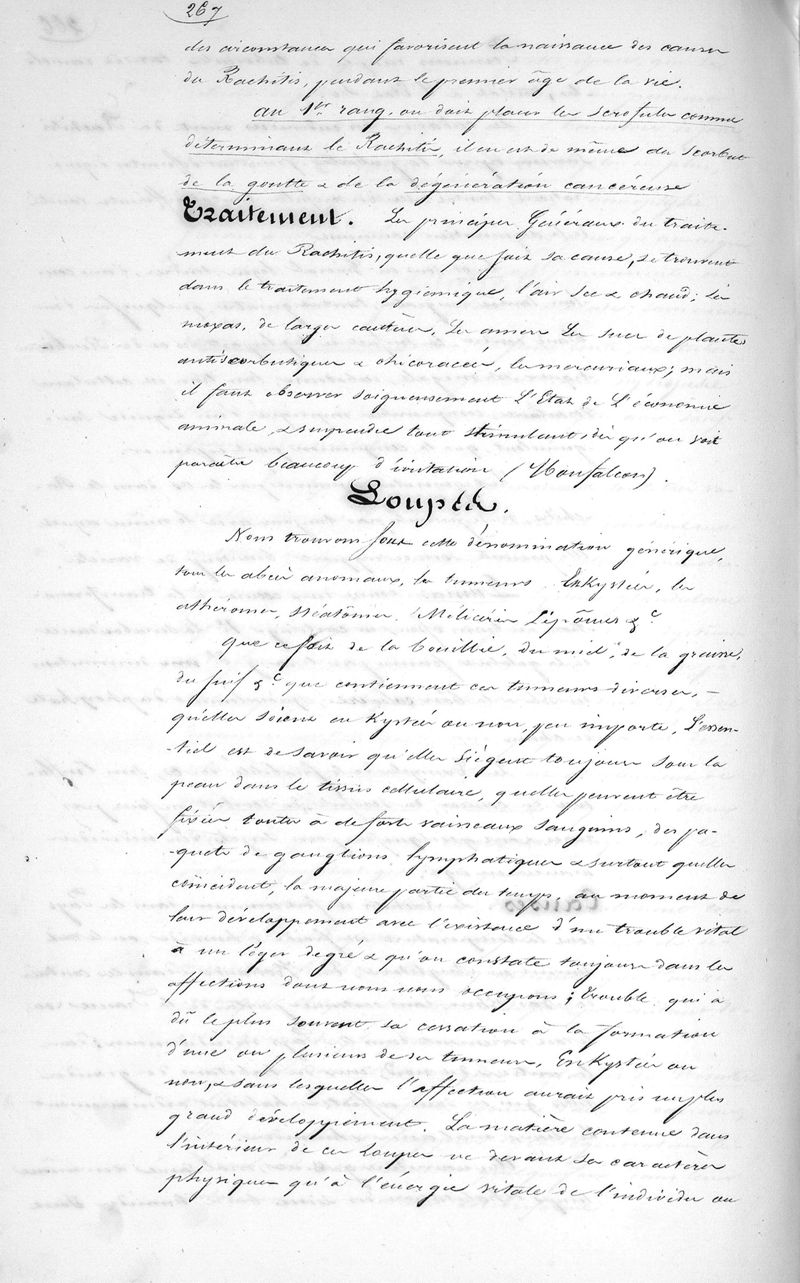 267
des circonstances qui favorisent la naissance des causes
du Rachitis, pendant le premier âge de la vie.
au 1er rang, on doit placer les scrofules comme
déterminant le Rachitis, il en est de même du scorbut
de la goutte & de la dégénération cancéreuse
Traitement. Les principes Généraux du traite-
ment du Rachitis, quelle que soit sa cause, se trouvent
dans le traitement hygiénique, l'air sec & chaud; les
moxas, de larges cautères, les amers les sucs de plantes
antiscorbutiques & chicoracées, les mercuriaux; mais
il faut observer soigneusement L'Etat de L'économie
animale, & suspendre tout stimulant dès qu'on voit
paraître beaucoup d'irritation (Monfalcon).
Loupes.
Nous trouvons sous cette dénomination générique,
tous les abcès anomaux, les tumeurs Enkystées, les
athéromes, stéatômes, Mélicéris Lipômes &c.
Que ce soit de la bouillie, du miel, de la graisse,
du suif &c que contiennent ces tumeurs diverses, -
qu'elles soient en Kystées ou non, peu importe, L'essen-
-tiel est de savoir qu'elles siégent toujours sous la
peau dans le tissus cellulaire, quelles peuvent être
fixées toutes à de forts vaisseaux sanguins, des pa-
-quets de ganglions lymphatiques & surtout quelles
coïncident, la majeure partie du temps, au moment de
leur développement avec l'existence d'un trouble vital
à un léger degré & qu'on constate toujours dans les
affections dont nous nous occupons; trouble qui a
dû le plus souvent sa cessation à la formation
d'une ou plusieurs de ses tumeurs, EnKystées ou
non, & sans lesquelles l'affection aurait pris un plus
grand développement. La matière contenue dans
l'intérieur de ces loupes ne devant ses caractères
physiques qu'à l'énergie vitale de l'individu ou